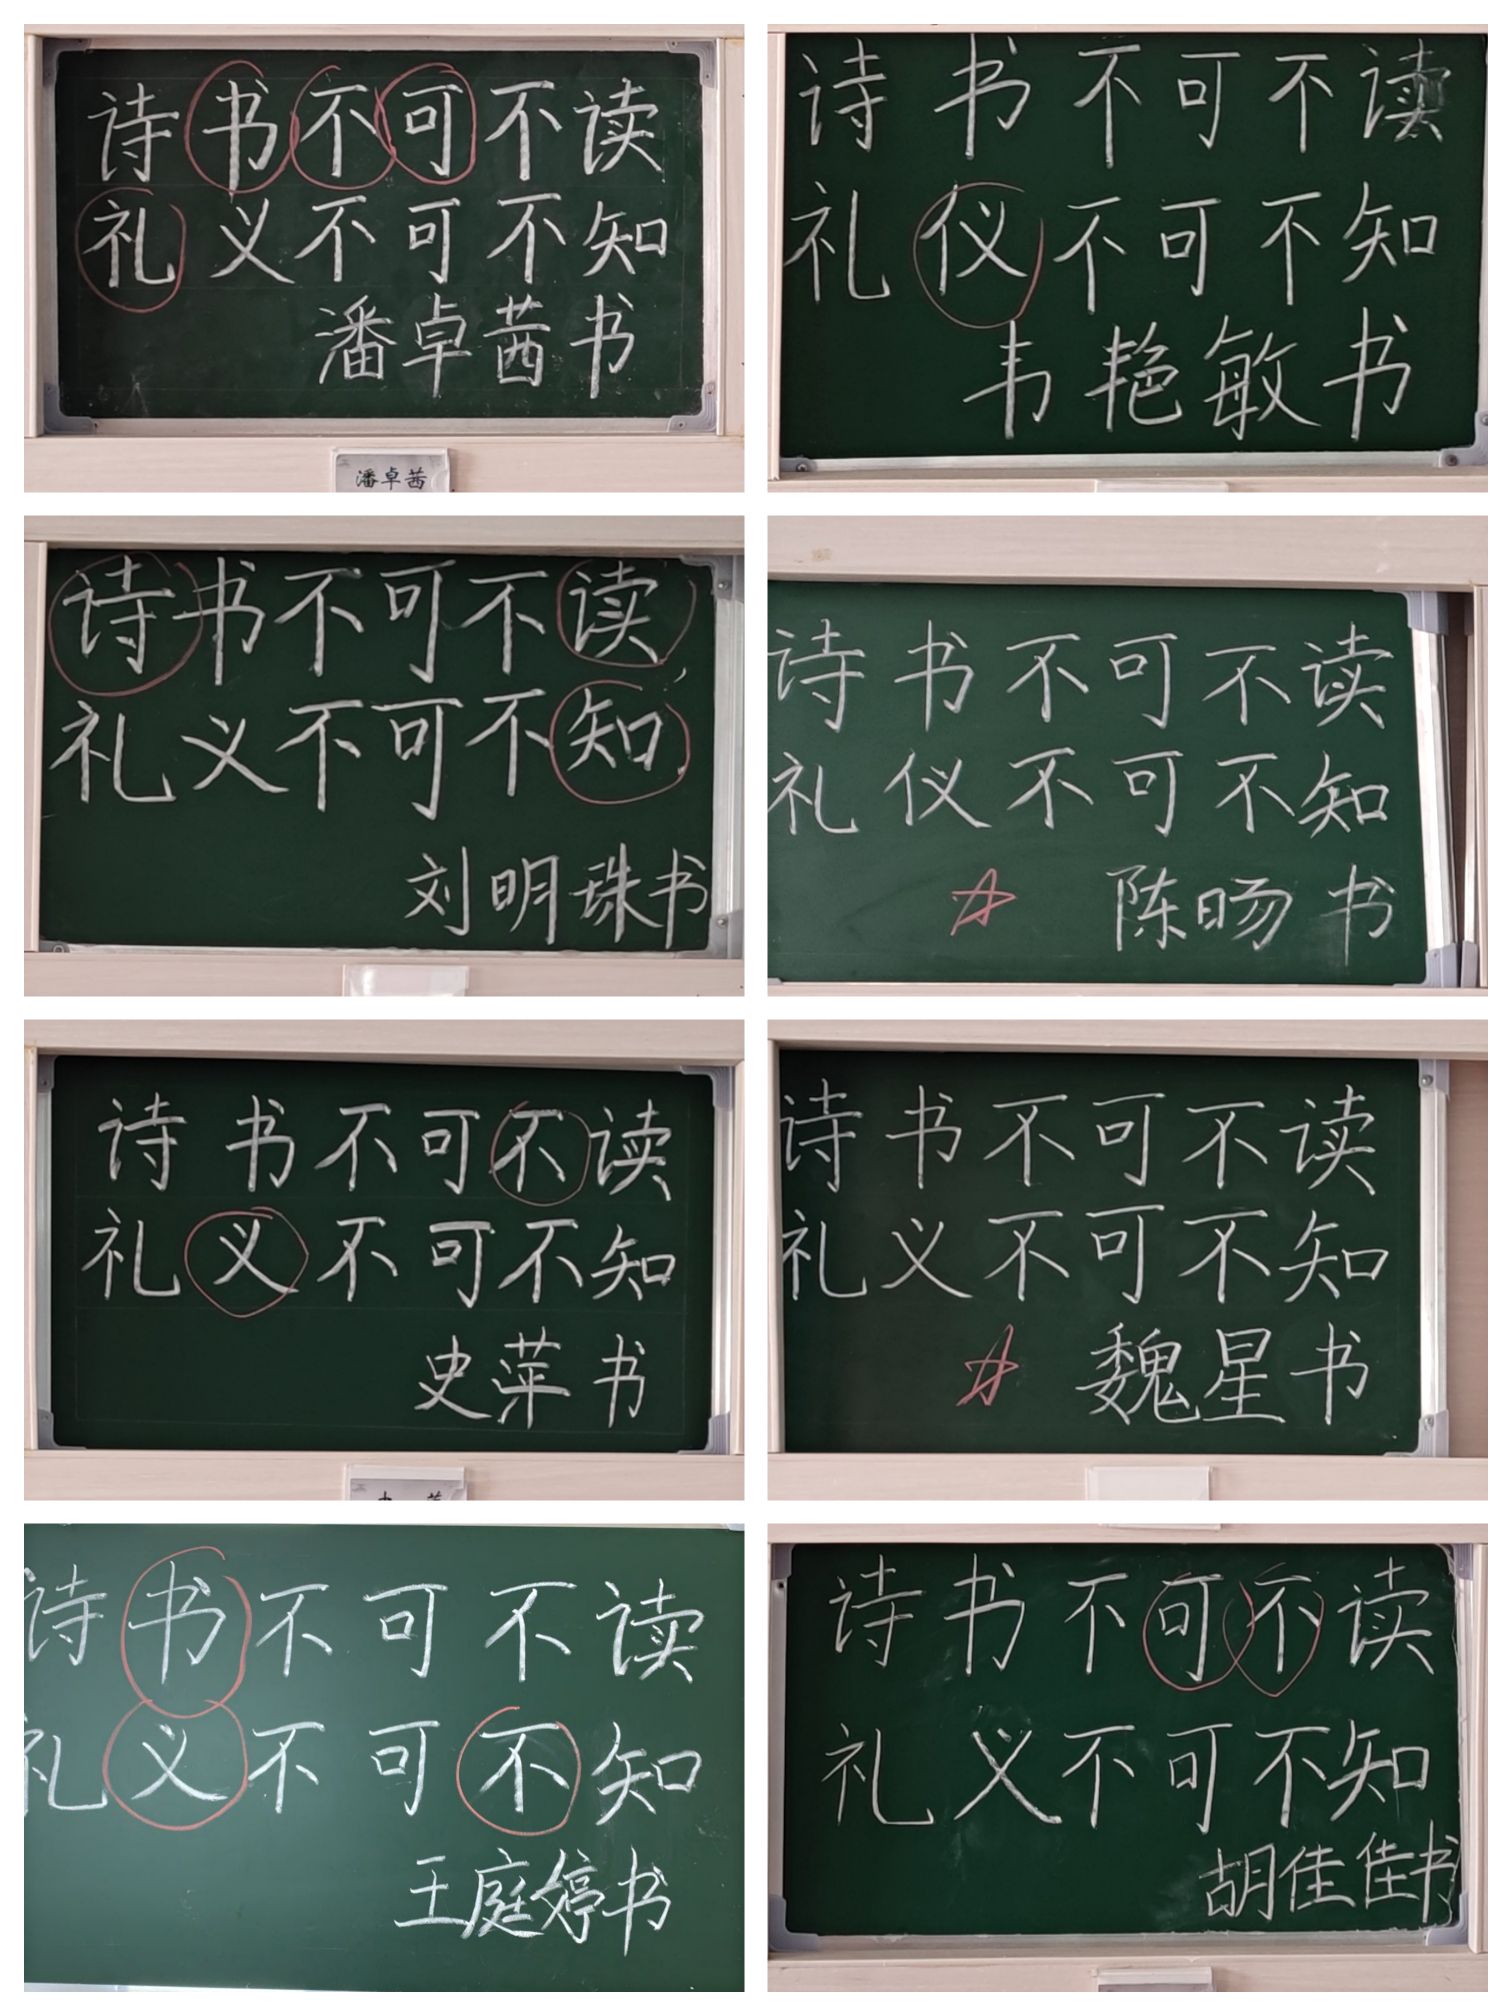 诗书不可不读
礼义不可不知
潘卓茜书
潘卓茜
诗书不可不读
礼仪不可不知
韦艳敏书
诗书不可不读
礼义不可不知
刘明珠书
诗书不可不读
礼仪不可不知
陈旸书
诗书不可不读
礼义不可不知
史苹书
诗书不可不读
礼义不可不知
魏星书
诗书不可不读
礼义不可不知
王庭婷书
诗书不可不读
礼义不可不知
胡佳佳书